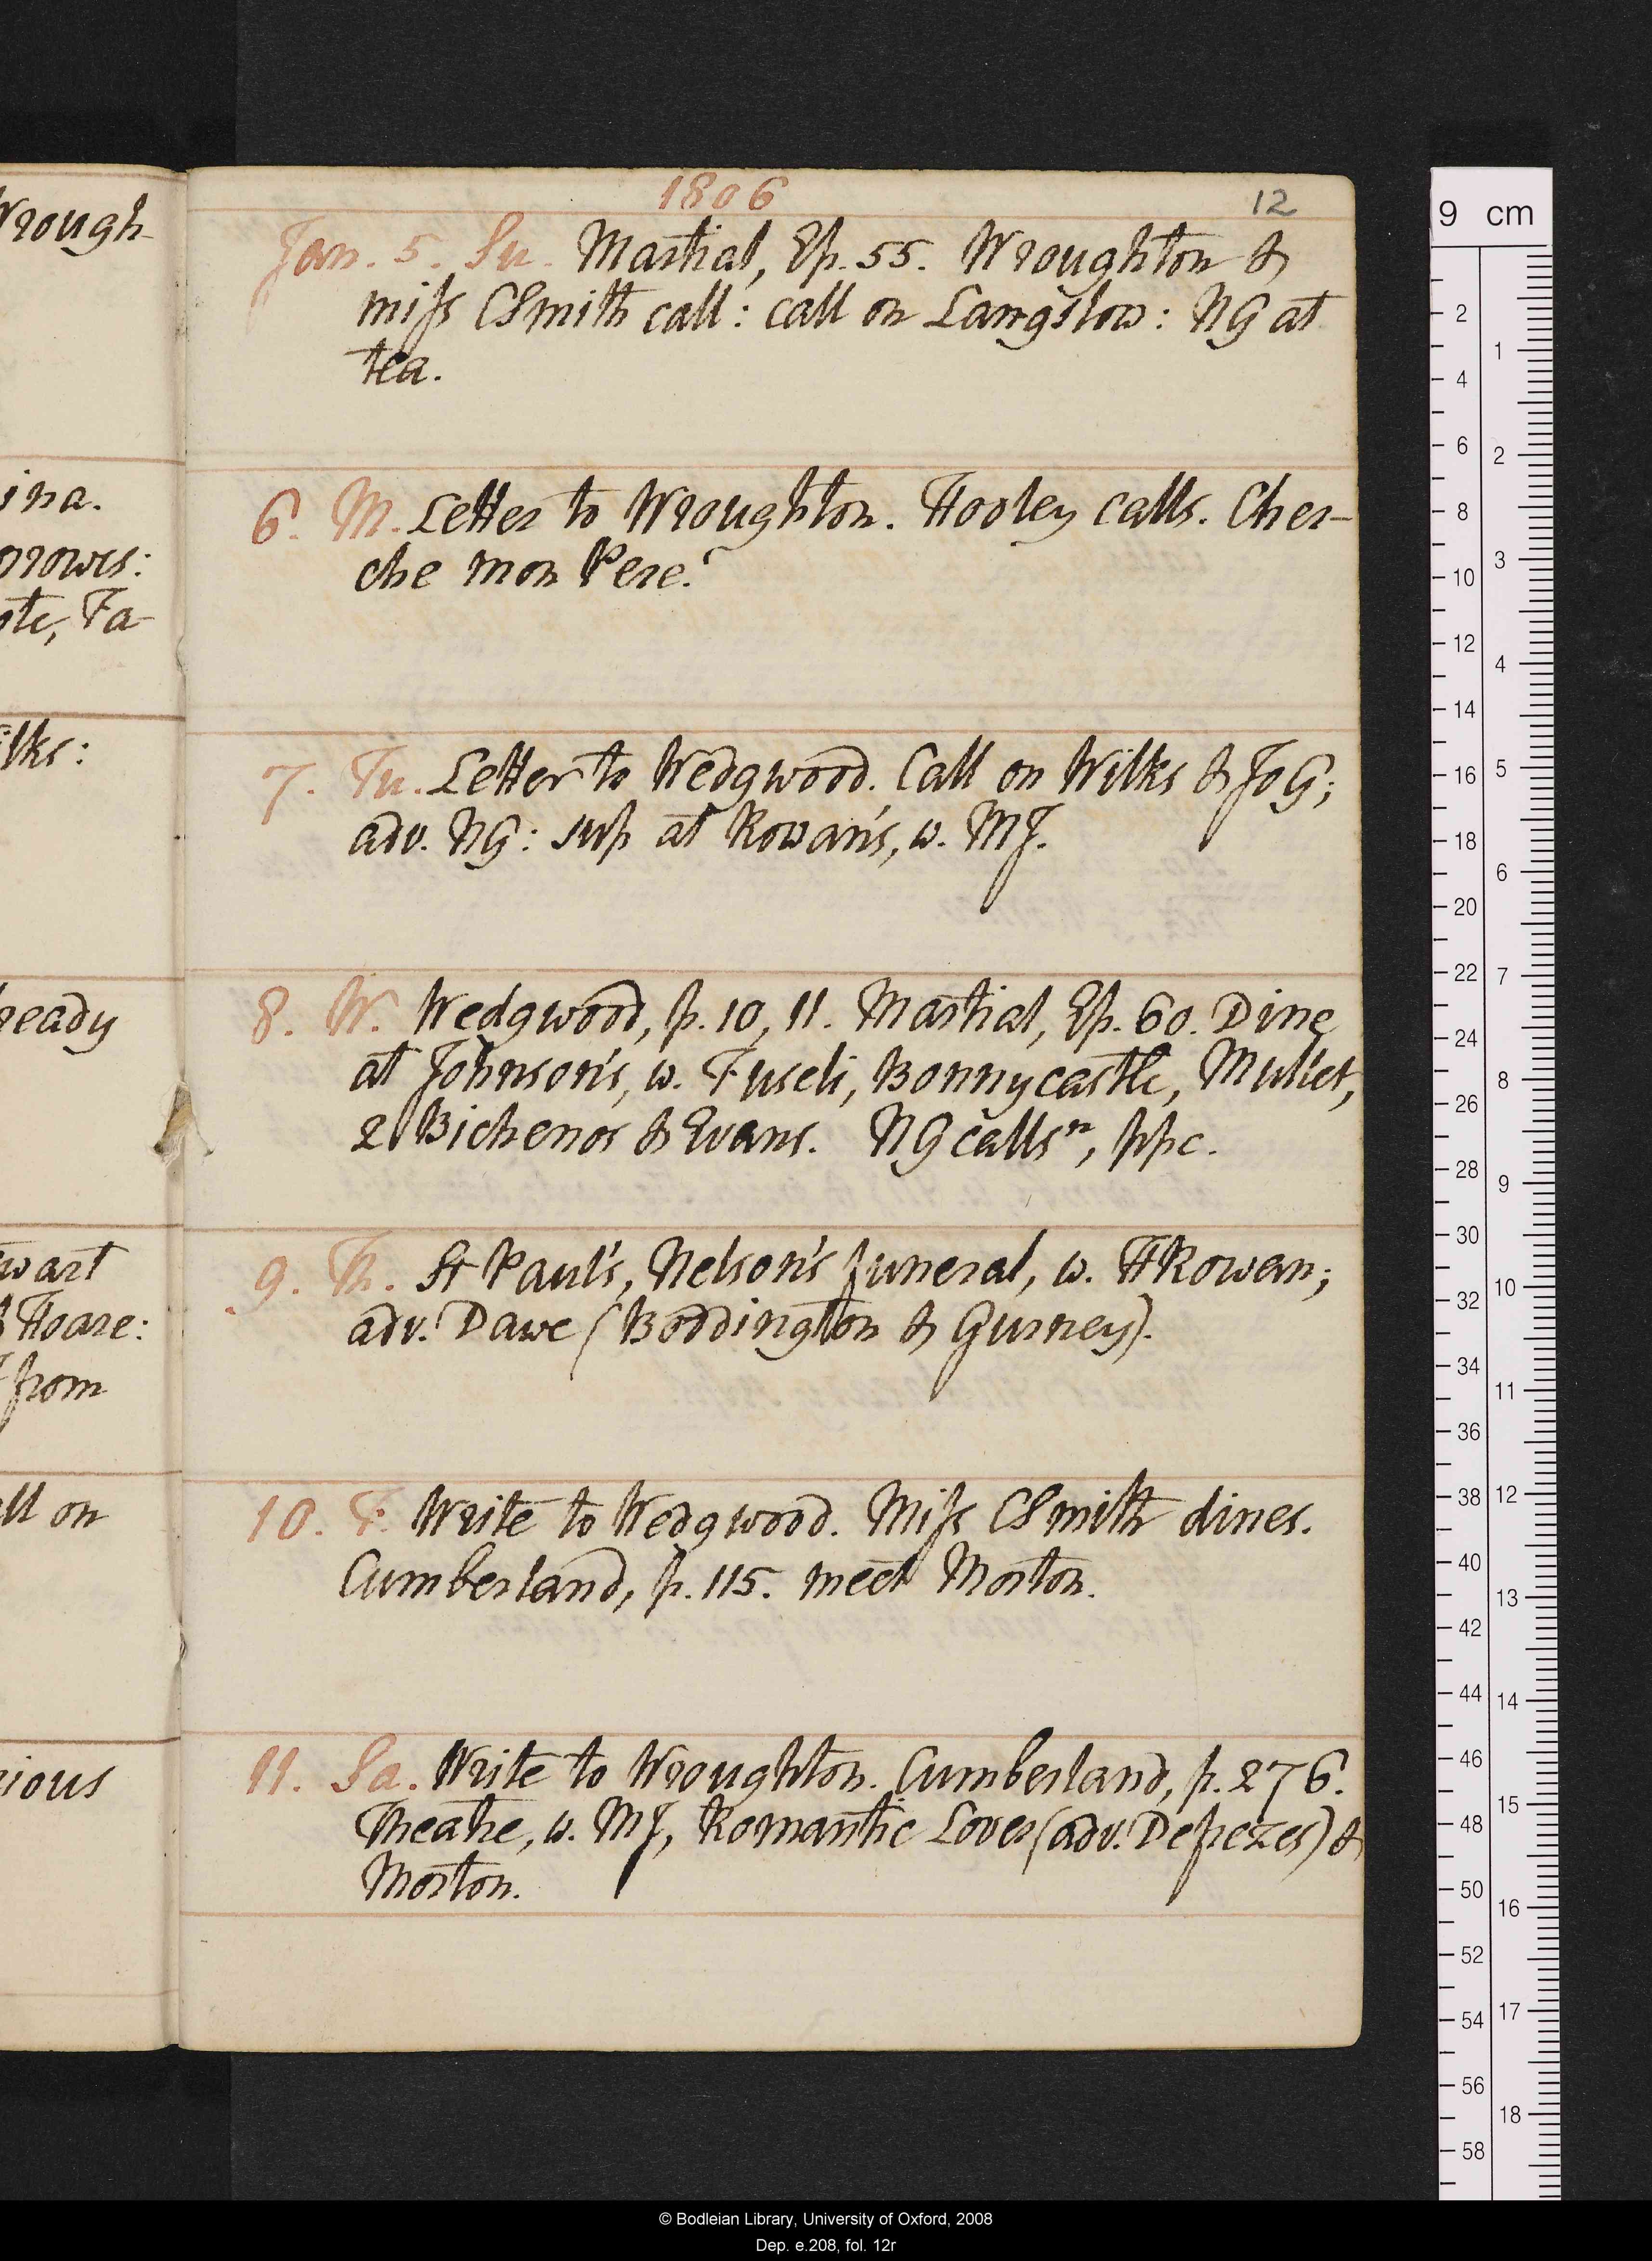 Wrough-
ina.
orows:
ote, Fa-
ilks:
ready
wart
& Hoare:
from
ll on
rious
1806
12
Jan. 5. Su. Martial, Ep. 55. Wroughton &
miss CSmith call: call on Langslow: NG at
tea.
6. M. Letter to Wroughton. Hooley calls. Cher-
che mon Pere.
7. Tu. Letter to Wedgwood. Call on Wilks & JoG;
adv. NG: sup at Rowan's, w. MJ.
8. W. Wedgwood, p. 10, 11. Martial, Ep. 60. Dine
at Johnson's, w. Fuseli, Bonnycastle, Mullet,
2 Bichenos & Evans. NG callsⁿ, ppc.
9. Th. St Paul's, Nelson's funeral, w. HRowan;
adv. Dawe (Boddington & Gurney).
10. F. Write to Wedgwood. Miss CSmith dines.
Cumberland, p. 115. meet Morton.
11. Sa. Write to Wroughton. Cumberland, p. 276.
Theatre, w. MJ, Romantic Lover (adv. Depezes) &
Morton.
9 cm
2
4
6
8
10
12
14
16
18
20
22
24
26
28
30
32
34
36
38
40
42
44
46
48
50
52
54
56
58
1
2
3
4
5
6
7
8
9
10
11
12
13
14
15
16
17
18
© Bodleian Library, University of Oxford, 2008
Dep. e.208, fol. 12r